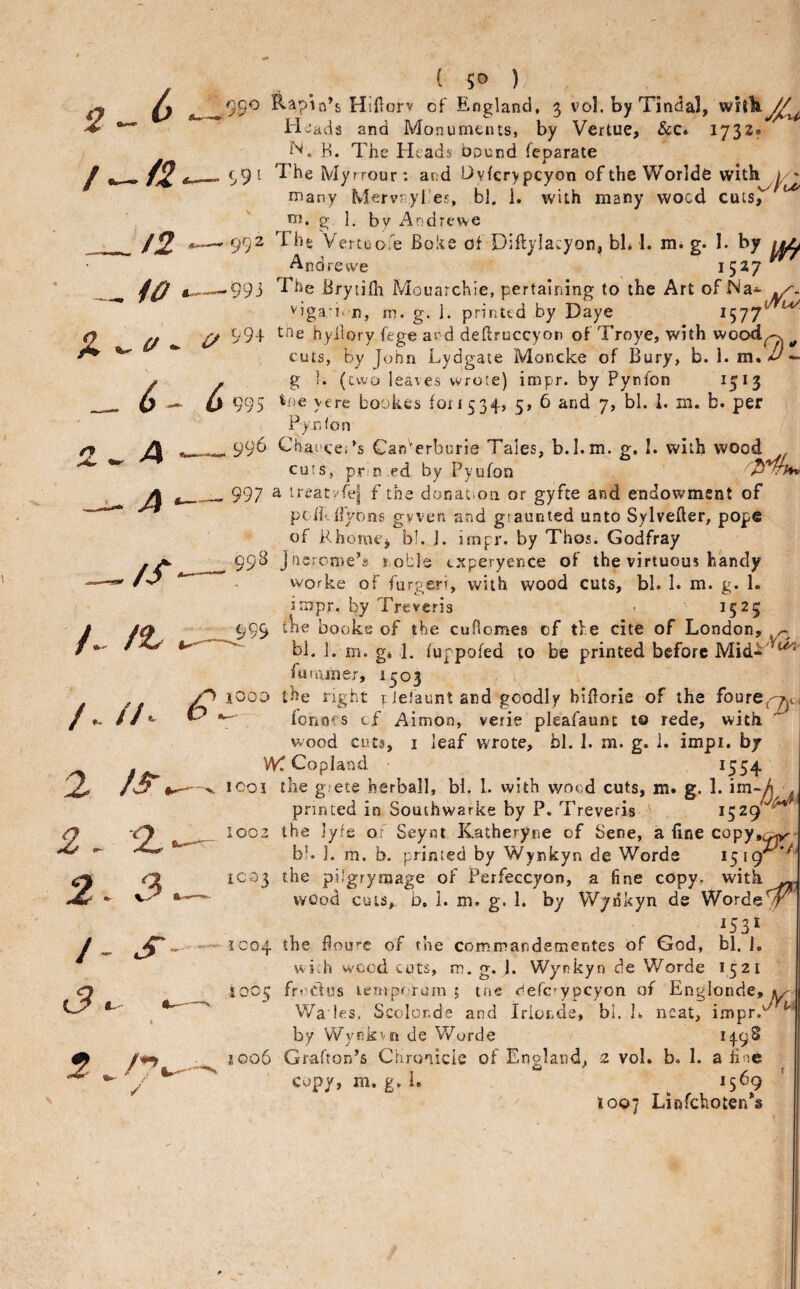 ( 50 )
2 - 6 - 990 Rapin's Hiſtory of England, 3 vol. by Tindal, with
Heads and Monuments, by Vertue, &c. 1732.
N. B. The Heads bound ſeparate
1 - 12 - 991 The Myrrour: and Dyſcrypcyon of the Worlde with
many Mervrylles, bl. l. with many wood cuts,
m. g l. by Andrewe
- 12 - 992 The Vertuoſe Boke of Diſtylacyon, bl. l. m. g. l. by
Andrewe 1527
- 10 - 993 The Brytiſh Monarchie, pertaining to the Art of Na-
vigation, m. g. l. printed by Daye 1577
2 - 0 - 0 994 the hyſlory ſege and deſtruccyon of Troye, with wood
cuts, by John Lydgate Moncke of Bury, b. l. m.
g l. (two leaves wrote) impr. by Pynſon 1513
- 6 - 6 995 the yere bookes for 1534, 5, 6 and 7, bl. l. m. b. per
Pynſon
2 - A - 996 Chaucer's Canterburie Tales, b. l. m. g. l. with wood
cuts, prin ed by Pyuſon
- A - 997 a treatyſe f the donation or gyfte and endowment of
poſſeſſyons gyven and graunted unto Sylveſter, pope
of Rhome, bl. l. impr. by Thos. Godfray
- 15 - 998 Jnerome's noble experyence of the virtuous handy
worke of ſurgeri, with wood cuts, bl. l. m. g. l.
impr. by Treveris 1525
1 - 12 - 999 the booke of the cuſtomes of the cite of London,
bl. l. m. g. l. ſuppoſed to be printed before Mid-
ſummer, 1503
1 - 11 - 6 - 1000 the right pleſaunt and goodly hiſtorie of the foure
ſonnes of Aimon, verie pleaſaunt to rede, with
wood cuts, 1 leaf wrote, bl. l. m. g. l. impr. by
W. Copland 1554
2 15 - 1001 the grete herball, bl. l. with wood cuts, m. g. l. im-
printed in Southwarke by P. Treveris 1529
2 - 2 - 1002 the lyfe of Seynt Katheryne of Sene, a fine copy,
bl. l. m. b. printed by Wynkyn de Worde 1519
2 - 3 - 1003 the pilgrymage of Perfeccyon, a fine copy, with
wood cuts, b. l. m. g. l. by Wynkyn de Worde
1531
1 - 5 - 1004 the floure of the commandementes of God, bl. l.
with wood cuts, m. g. l. Wynkyn de Worde 1521
3 - - 1005 fructus temporum; the deſcrypcyon of Englonde,
Wales, Scolonde and Irlonde, bl. l. neat, impr.
by Wynkyn de Worde 1498
2 - 17 - 1006 Grafton's Chronicle of England, 2 vol. b. l. a fine
copy, m. g. l. 1569
1007 Linſchoten's